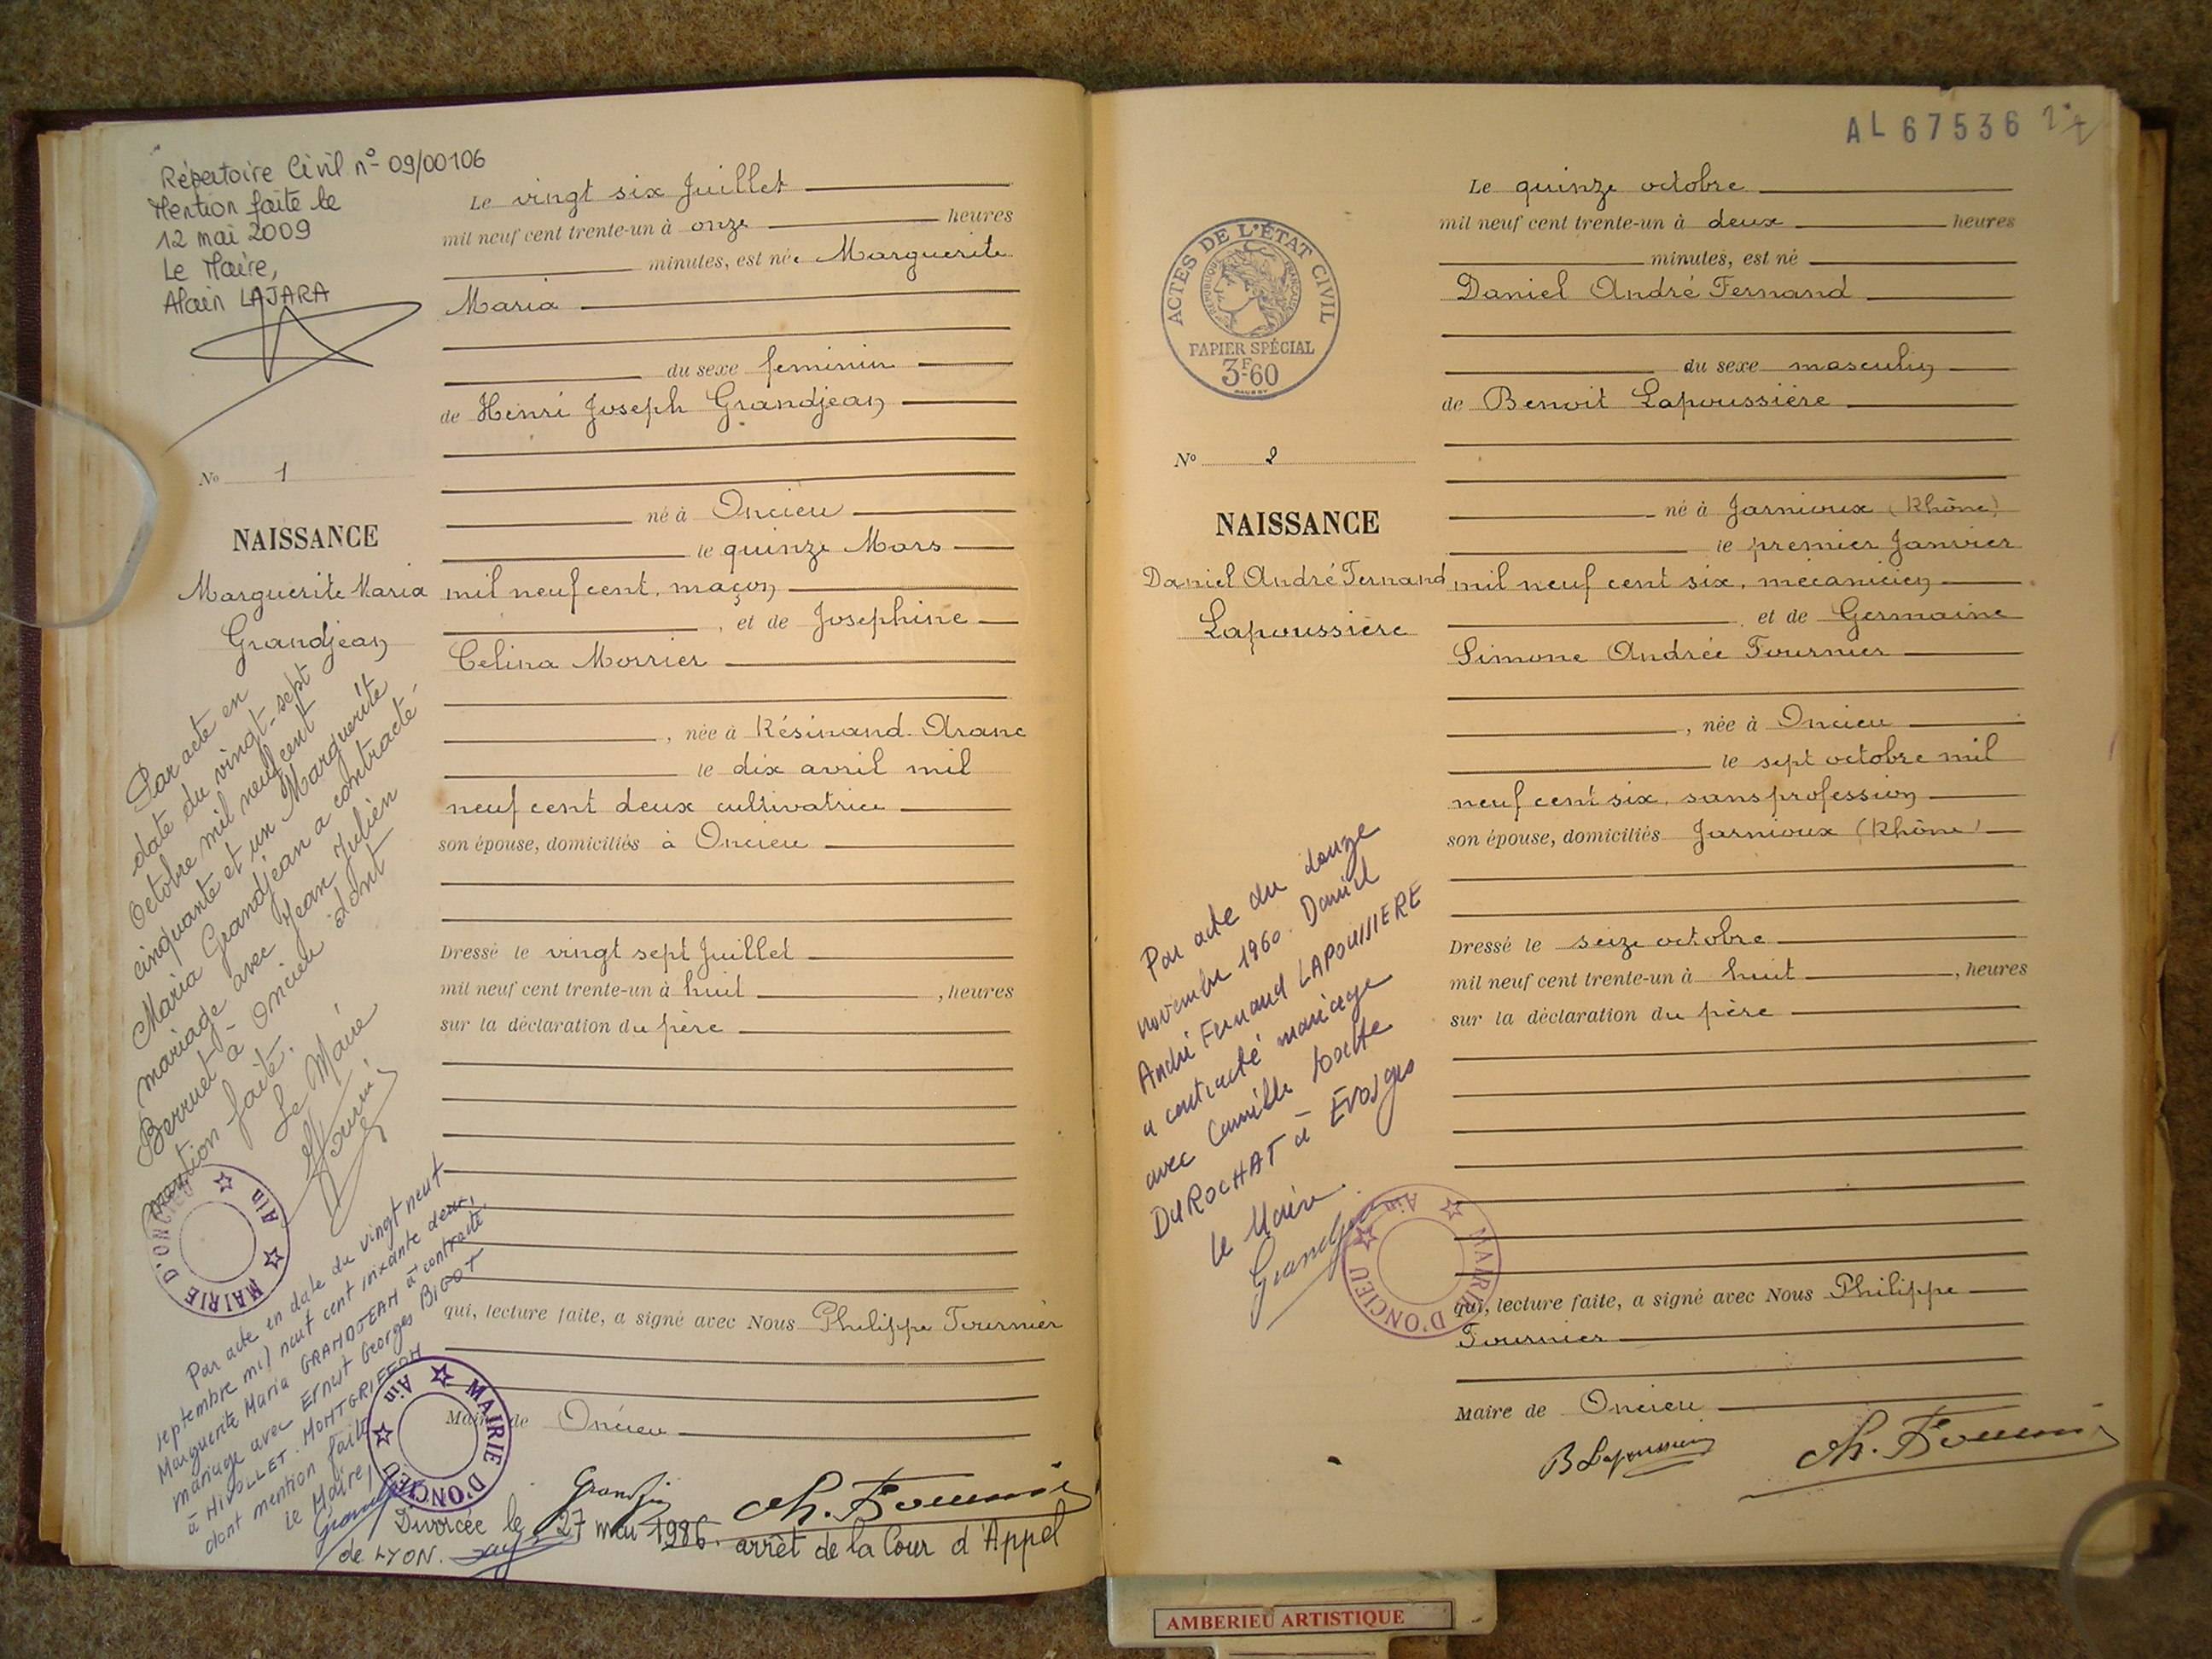 Répertoire Civil n° 09/00106
Mention faite le
12 mai 2009
Le Maire,
Alain LAJARA
No 1
NAISSANCE
Marguerite Maria
Grandjean
Par acte en
date du vingt-sept
Octobre mil neuf cent
cinquante et un Marguerite
Maria Grandjean a contracté
mariage avec Jean Julien
Berruet à Oncieu dont
mention faite.
Le Maire
MAIRIE D'ONCIEU Ain
Par acte en date du vingt neuf
septembre mil neuf cent soixante deux,
Marguerite Maria GRANDJEAN à contracté
mariage avec Ernest Georges BIGOT
à NIVOLLET-MONTGRIFFON
dont mention faite
le Maire,
MAIRIE D'ONCIEU Ain
Le vingt six Juillet
mil neuf cent trente-un à onze heures
minutes, est née Marguerite
Maria
du sexe feminin
de Henri Joseph Grandjean
né à Oncieu
le quinze Mars
mil neuf cent, maçon
, et de Josephine
Celina Morrier
, née à Résinand-Aranc
le dix avril mil
neuf cent deux cultivatrice
son épouse, domiciliés à Oncieu
Dressé le vingt sept Juillet
mil neuf cent trente-un à huit , heures
sur la déclaration du père
qui, lecture faite, a signé avec Nous Philippe Fournier
Maire de Oncieu
Grandjean Ph. Fournier
Divorcée le 27 mai 1986. arrêt de la Cour d'Appel
de LYON.
AL 67536
ACTES DE L'ÉTAT CIVIL
RÉPUBLIQUE FRANÇAISE
PAPIER SPÉCIAL
3F60
No 2
NAISSANCE
Daniel André Fernand
Lapoussière
Par acte du douze
novembre 1960. Daniel
André Fernand LAPOUSSIERE
a contracté mariage
avec Camille Josette
DUROCHAT à ÉVOSges
le Maire.
Grandjean
MAIRIE D'ONCIEU Ain
Le quinze octobre
mil neuf cent trente-un à deux heures
minutes, est né
Daniel André Fernand
du sexe masculin
de Benoit Lapoussière
né à Jarnioux (Rhône)
le premier Janvier
mil neuf cent six, mécanicien
et de Germaine
Simone Andrée Fournier
, née à Oncieu
le sept octobre mil
neuf cent six, sans profession
son épouse, domiciliés Jarnioux (Rhône)
Dressé le seize octobre
mil neuf cent trente-un à huit , heures
sur la déclaration du père
qui, lecture faite, a signé avec Nous Philippe
Fournier
Maire de Oncieu
B Lapoussière Ph. Fournier
AMBERIEU ARTISTIQUE